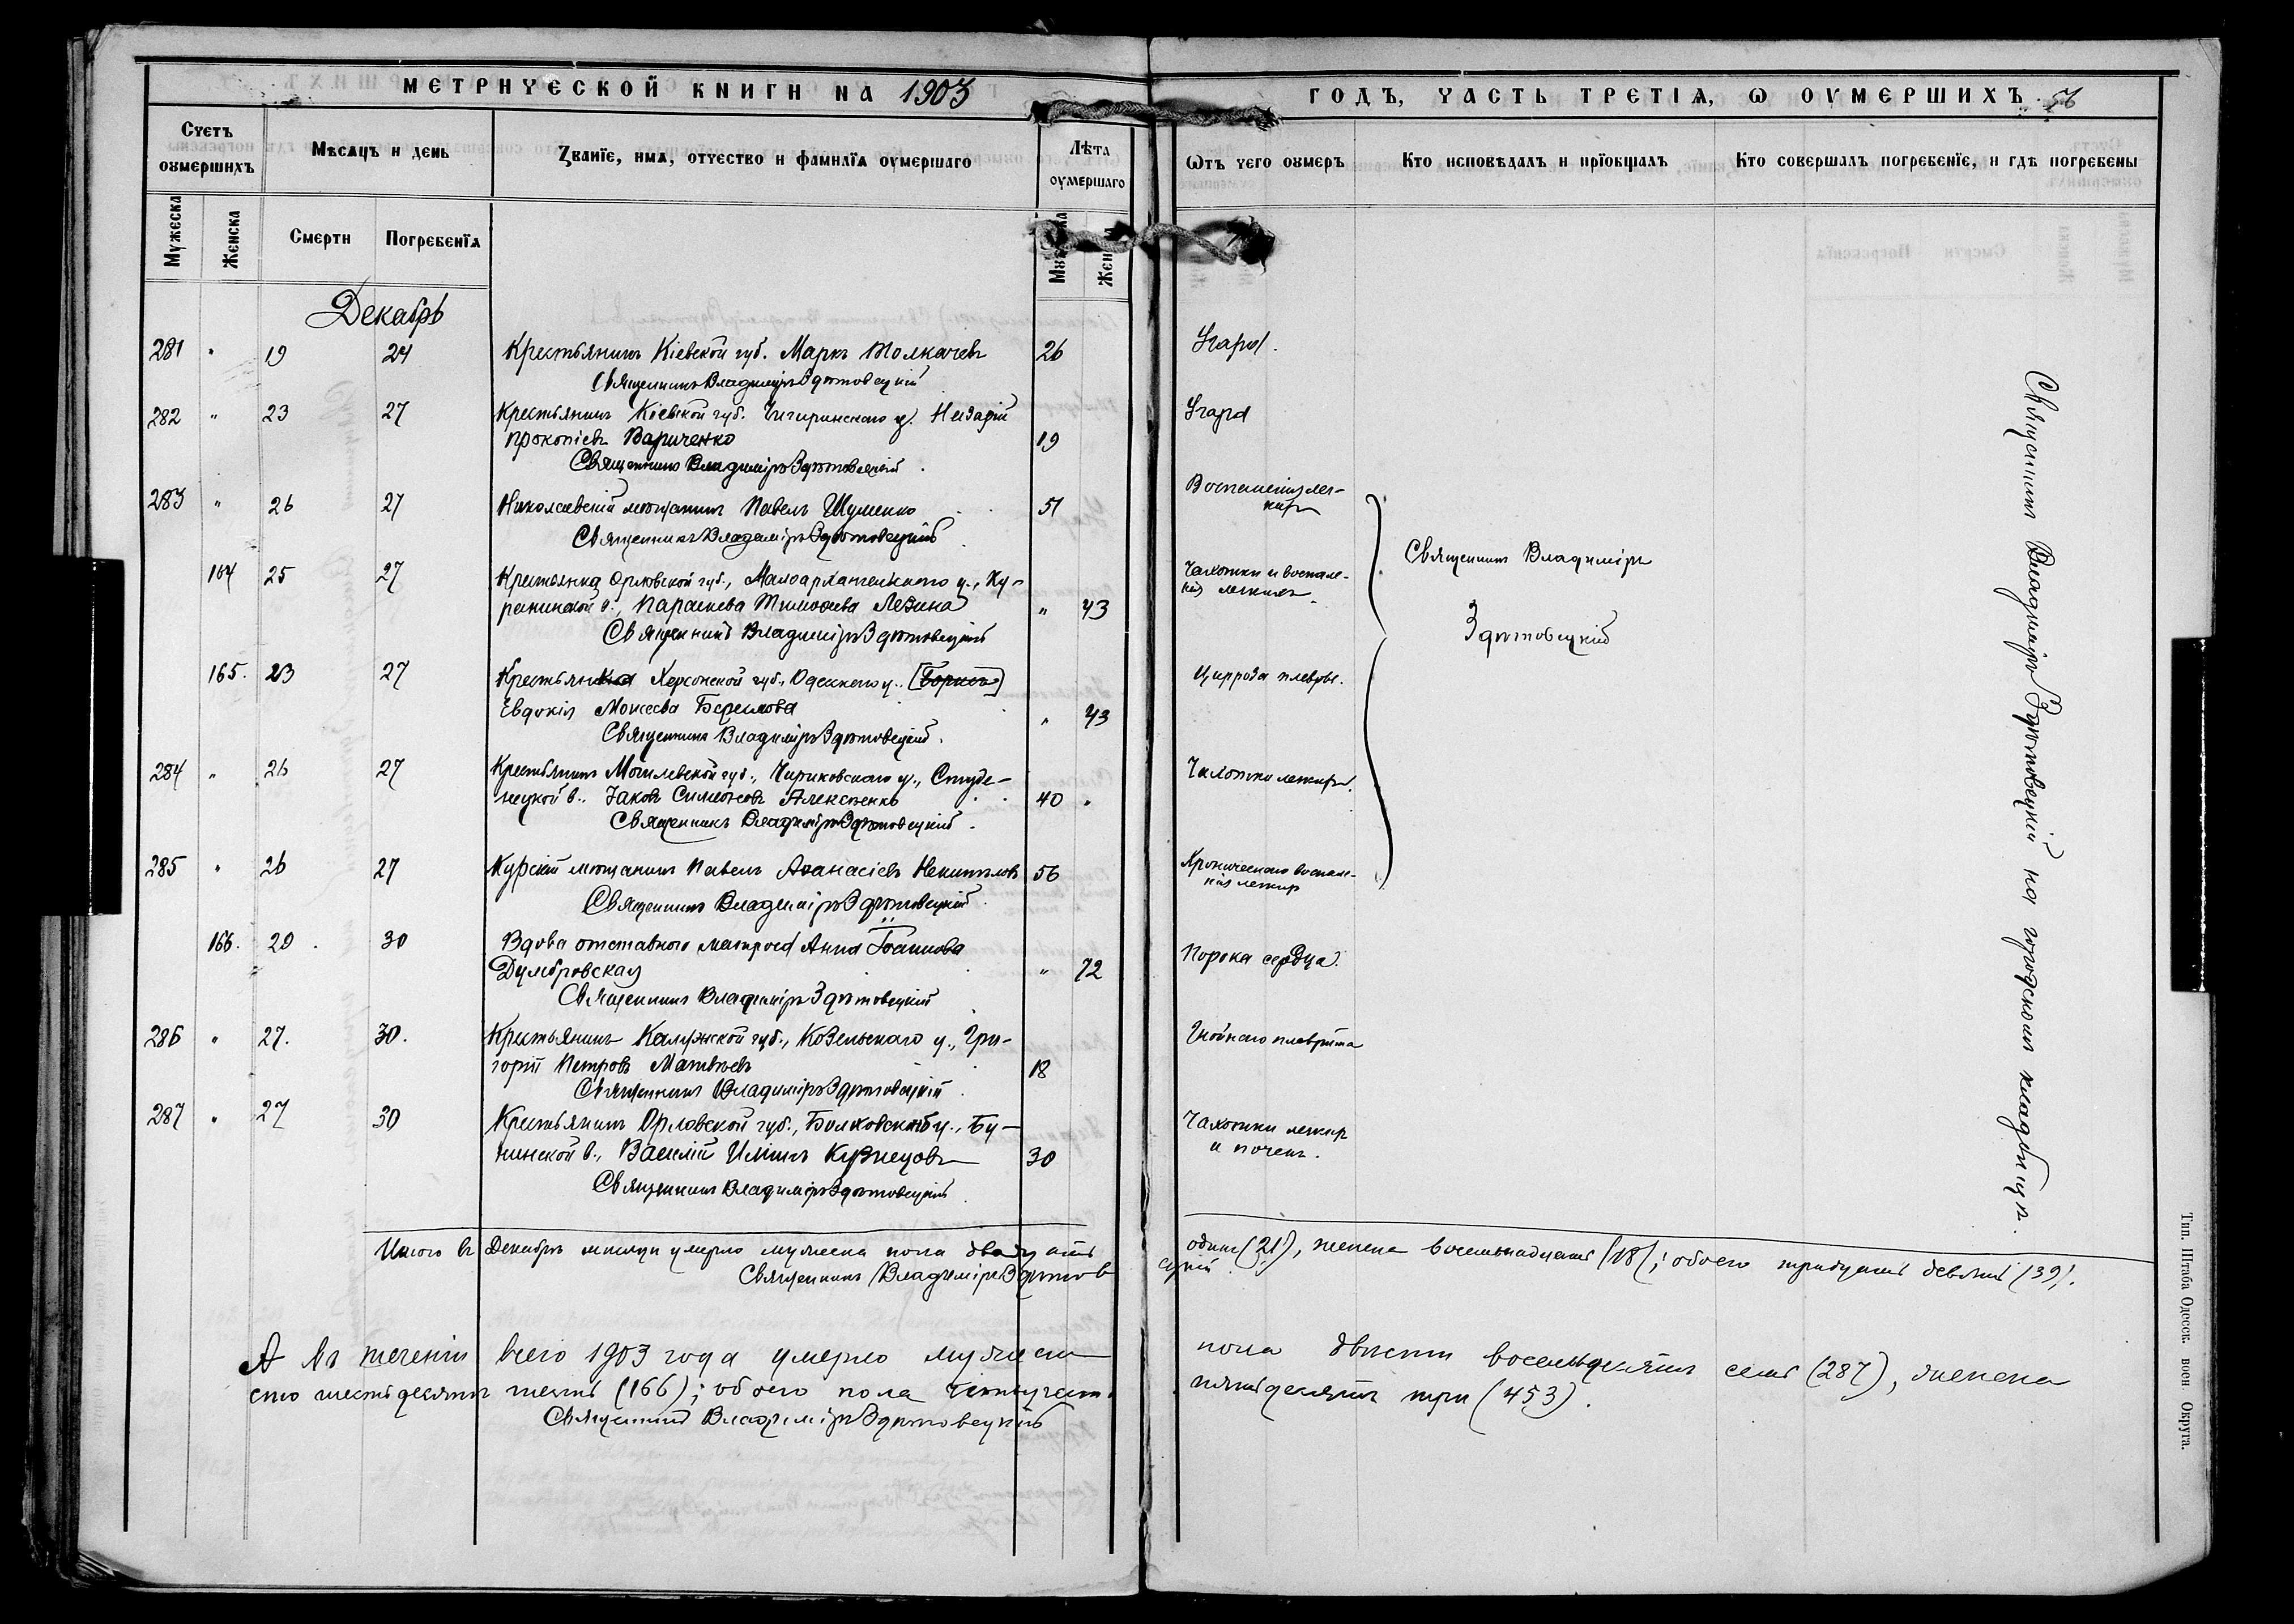 МЕТРИЧЕСКОЙ КНИГИ НА 1903
ГОДЪ, ЧАСТЬ ТРЕТІЯ, Ѡ ОУМЕРШИХЪ. 56
Счетъ оумершихъ
Мѣсяцъ и день
Званіе, имя, отчество и фамилія оумершаго
Лѣта оумершаго
Ѿтъ чего оумеръ
Кто исповѣдалъ и пріобщалъ
Кто совершалъ погребеніе, и гдѣ погребены
Мужеска
Женска
Смерти
Погребенія
Декабрь
281 " 19 24 Крестьянинъ Кіевской губ. Маркъ Толкачевъ 26 Угара.
Священникъ Владиміръ Здѣтовецкій
282 " 23 27 Крестьянинъ Кіевской губ. Чигиринскаго у. Назарій
Прокопіевъ Вариченко 19 Угара
Священникъ Владиміръ Здѣтовецкій.
283 " 26 27 Николаевскій мѣщанинъ Павелъ Шуменко 51 Воспаленія лег-
кихъ
Священникъ Владиміръ Здѣтовецкій.
164 25 27 Крестьянка Орловской губ., Малоархангельскаго у., Ку-
ракинской в., Параскева Тимоѳеева Лезина " 43 Чахотки и воспале-
нія легкихъ.
Священникъ Владиміръ Здѣтовецкій
Священникъ Владиміръ
Здѣтовецкій
165. 23 27 Крестьянка Херсонской губ., Одесскаго у.
Евдокія Моисеева " 43 Цирроза плевры.
Священникъ Владиміръ Здѣтовецкій.
284 " 26 27 Крестьянинъ Могилевской губ., Чериковскаго у., Студе-
нецкой в., Іаковъ Симеоновъ Алексѣенко 40 " Чахотки легкихъ.
Священникъ Владиміръ Здѣтовецкій.
285 " 26 27 Курскій мѣщанинъ Павелъ Аѳанасіевъ 56 Хроническаго воспале-
нія легкихъ
Священникъ Владиміръ Здѣтовецкій.
166. 29. 30 Вдова отставного матроса Анна Іоаннова
Думбровская " 72 Порока сердца.
Священникъ Владиміръ Здѣтовецкій
286 " 27. 30. Крестьянинъ Калужской губ., Козельскаго у., Гри-
горій Петровъ Матвѣевъ 18 Гнойнаго плеврита
Священникъ Владиміръ Здѣтовецкій.
287 " 27 30 Крестьянинъ Орловской губ., Болховскаго у., Бу-
нинской в., Василій Ильинъ Кузнецовъ 30 Чахотки легкихъ
и почекъ.
Священникъ Владиміръ Здѣтовецкій.
Священникъ Владиміръ Здѣтовецкій на городскомъ кладбищѣ.
Итого въ Декабрѣ мѣсяцѣ умерло мужеска пола двадцать одинъ (21), женска восемнадцать (18); обоего тридцать девять (39).
Священникъ Владиміръ Здѣтовецкій
А въ теченіи всего 1903 года умерло мужеска пола двѣсти восемьдесятъ семь (287), женска
сто шестьдесятъ шесть (166); обоего пола четыреста пятьдесятъ три (453).
Священникъ Владиміръ Здѣтовецкій
Тип. Штаба Одесск. воен. Округа.